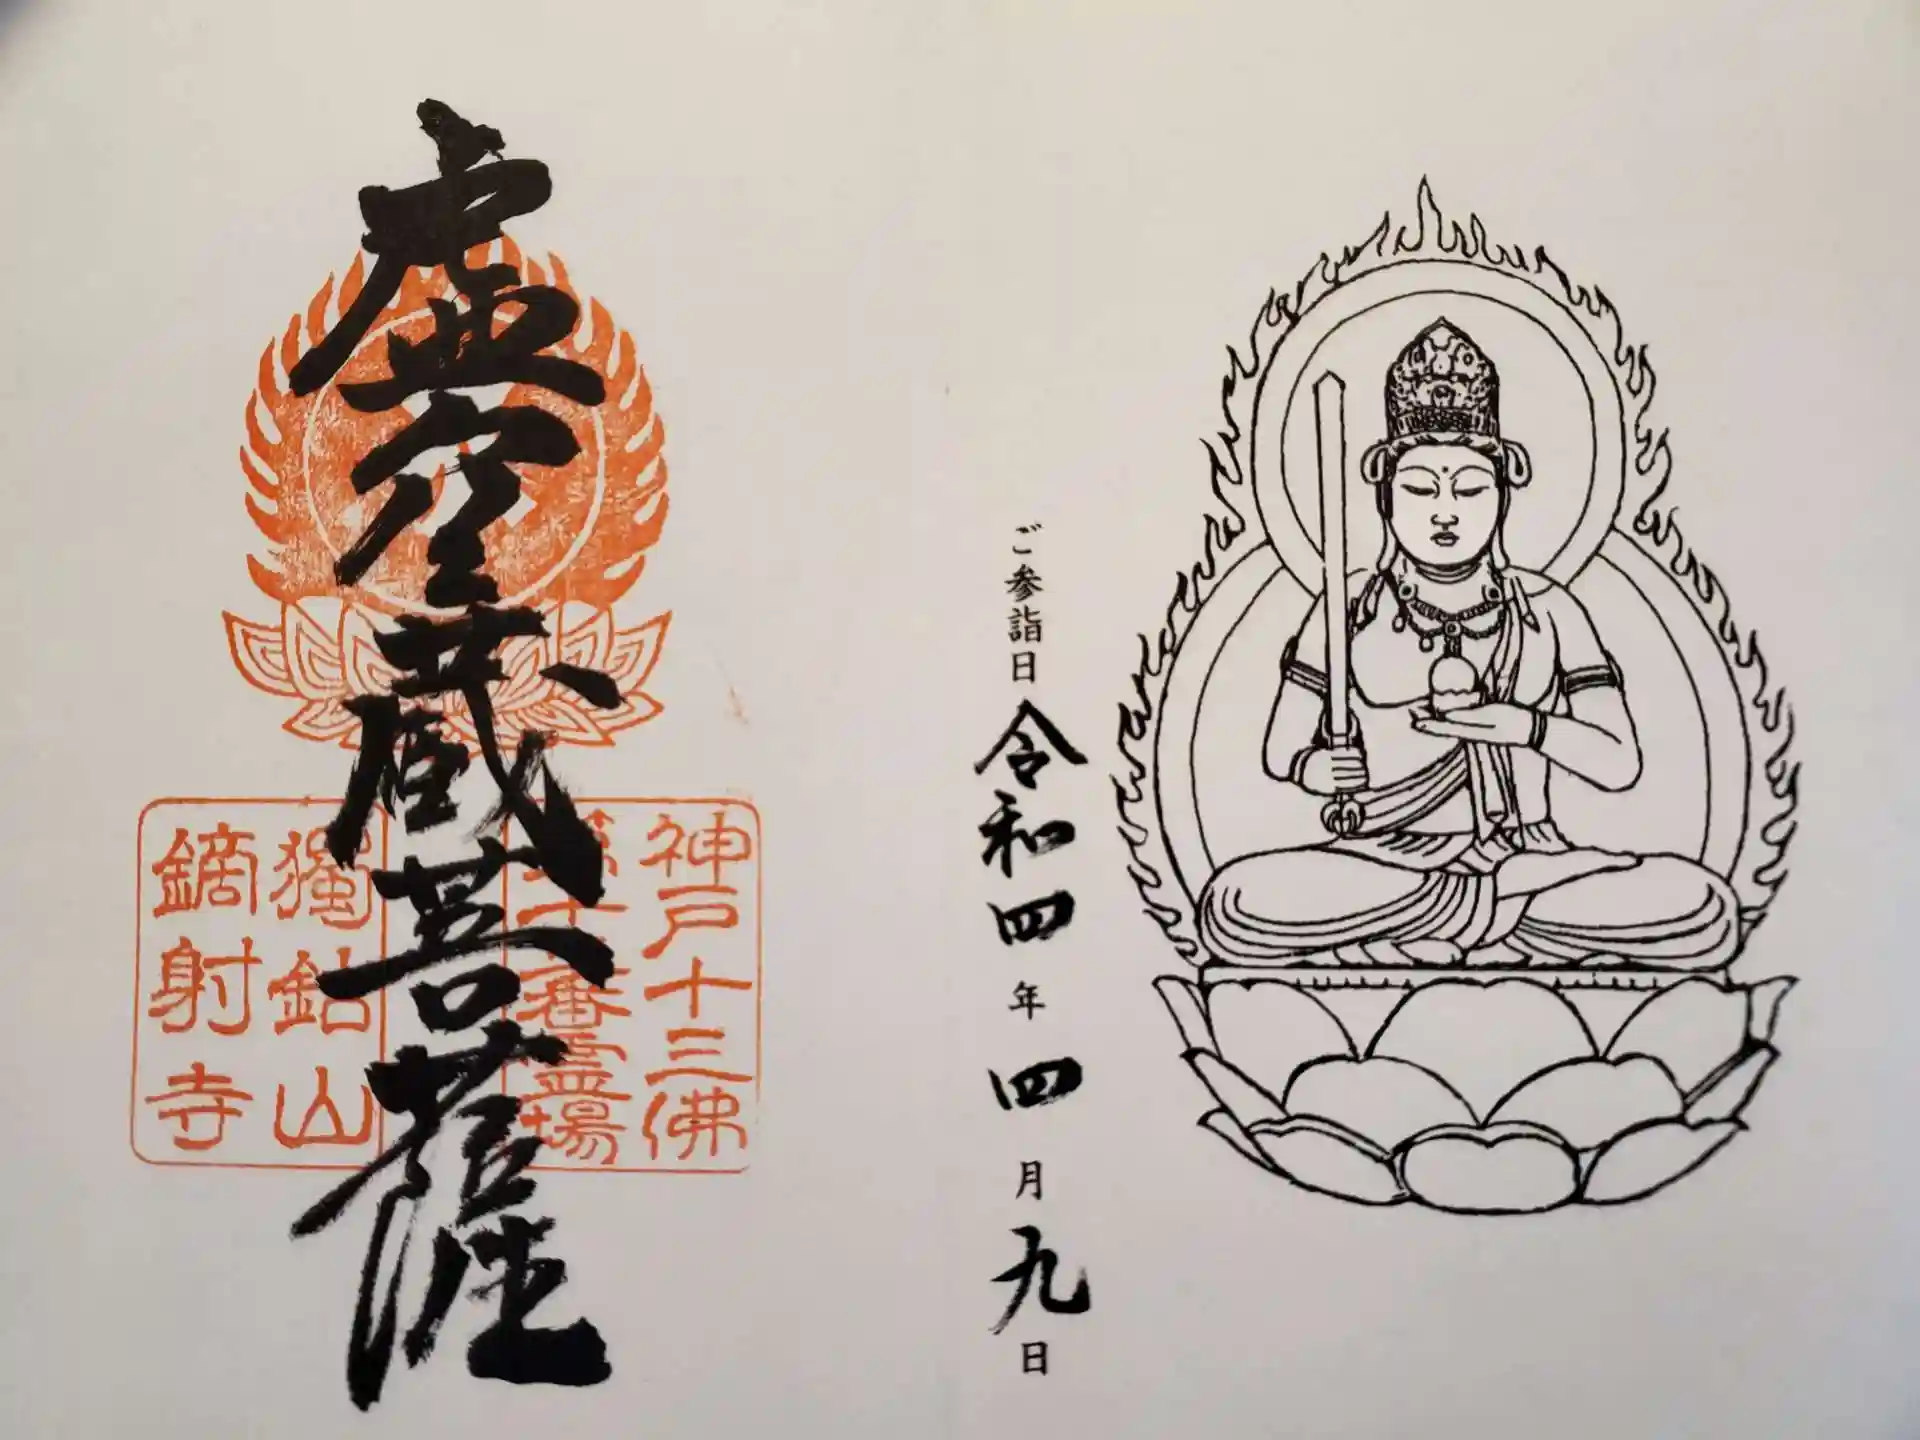 ご参詣日 令和四年四月九日
虚空蔵菩薩
神戸十三佛
第十三番霊場
獨鈷山
鏑射寺